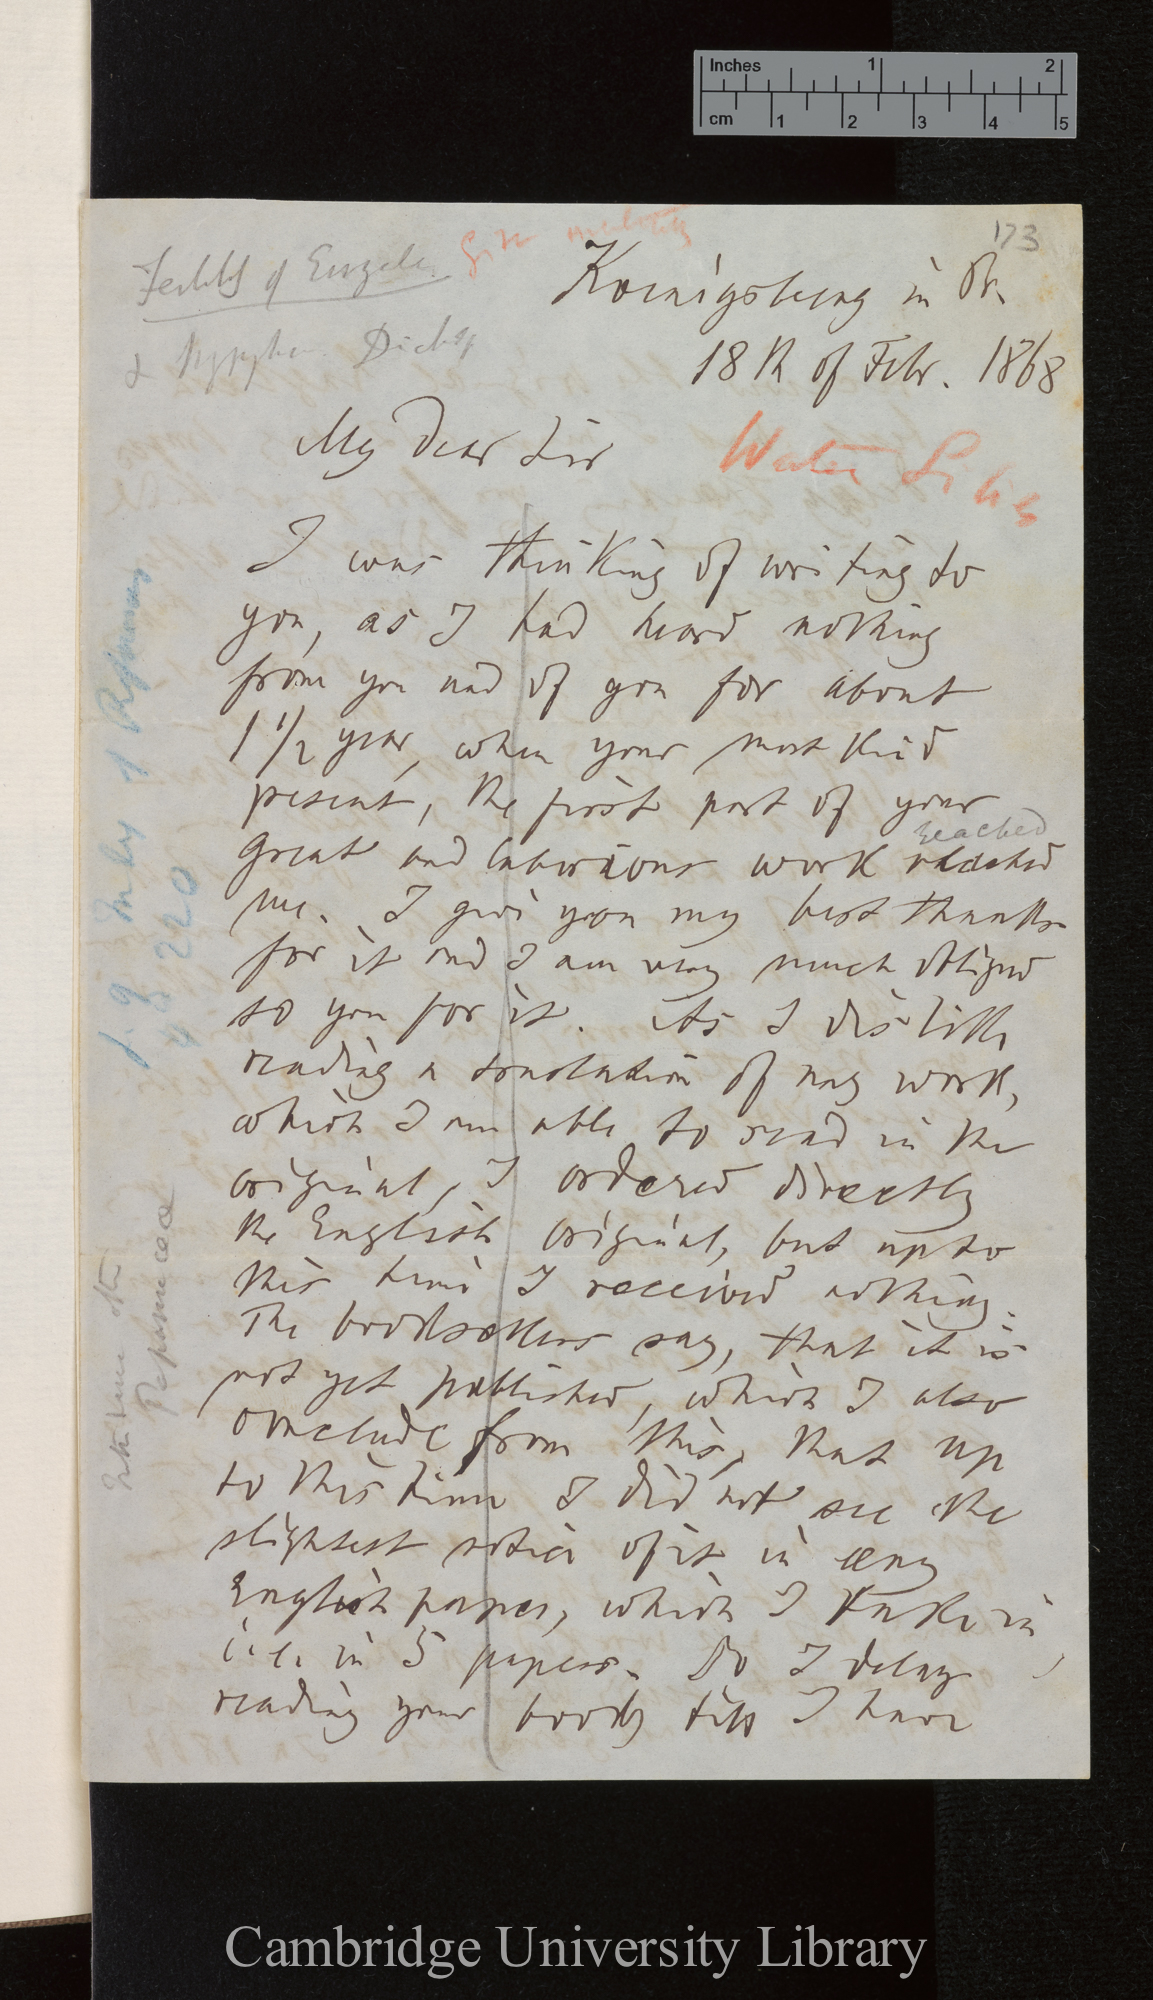 Inches 1 2
cm 1 2 3 4 5
173
Fertility of Euryale
Koenigsberg in Pr.
18th of Febr. 1868
My dear Sir
Water Lilies
I was thinking of writing to
you, as I had heard nothing
from you and of you for about
1 1/2 year, when your most kind
present, the first part of your
reached
great and laborious work reached
me. I give you my best thanks
for it and I am very much obliged
to you for it. As I dislike
reading a translation of any work,
which I am able to read in the
original, I ordered directly
the English original, but up to
this time I received nothing.
The booksellers say, that it is
not yet published, which I also
conclude from this, that up
to this time I did not see the
slightest notice of it in any
English paper, which I take in
i.e. in 5 papers. So I delay
reading your book till I have
220
Cambridge University Library